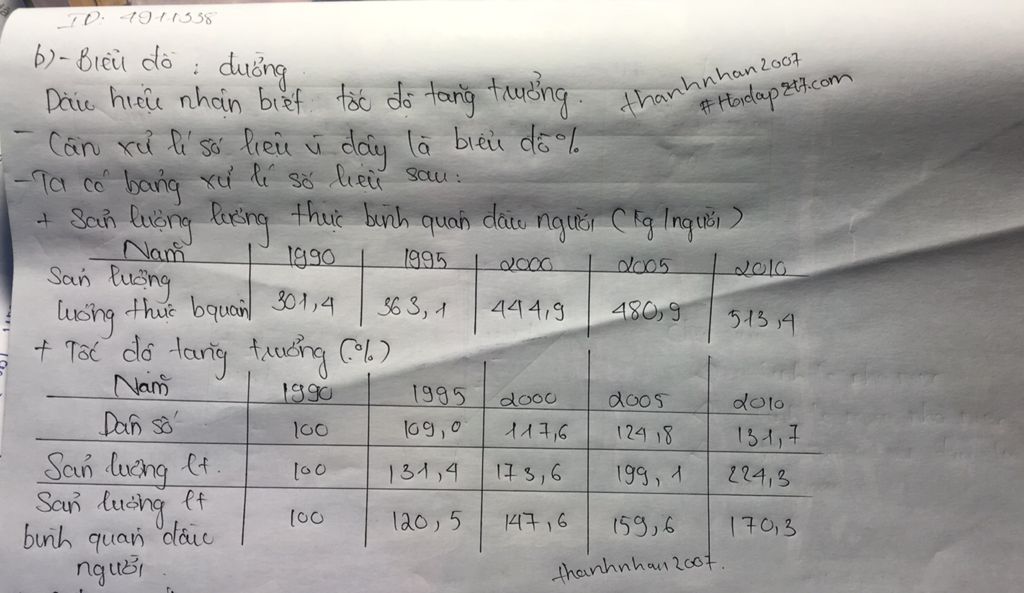 ID: 4911338
b) - Biểu đồ : đường
thanhnhan2007
#Hoidap247.com
Dấu hiệu nhận biết: tốc độ tăng trưởng.
- Cần xử lí số liệu vì đây là biểu đồ %
- Ta có bảng xử lí số liệu sau:
+ Sản lượng lương thực bình quân đầu người (Kg/người)
Năm 1990 1995 2000 2005 2010
Sản lượng
lương thực bquân 301,4 363,1 444,9 480,9 513,4
+ Tốc độ tăng trưởng (%)
Năm 1990 1995 2000 2005 2010
Dân số 100 109,0 117,6 124,8 131,7
Sản lượng lt. 100 131,4 173,6 199,1 224,3
Sản lượng lt
bình quân đầu 100 120,5 147,6 159,6 170,3
người.
thanhnhan2007.